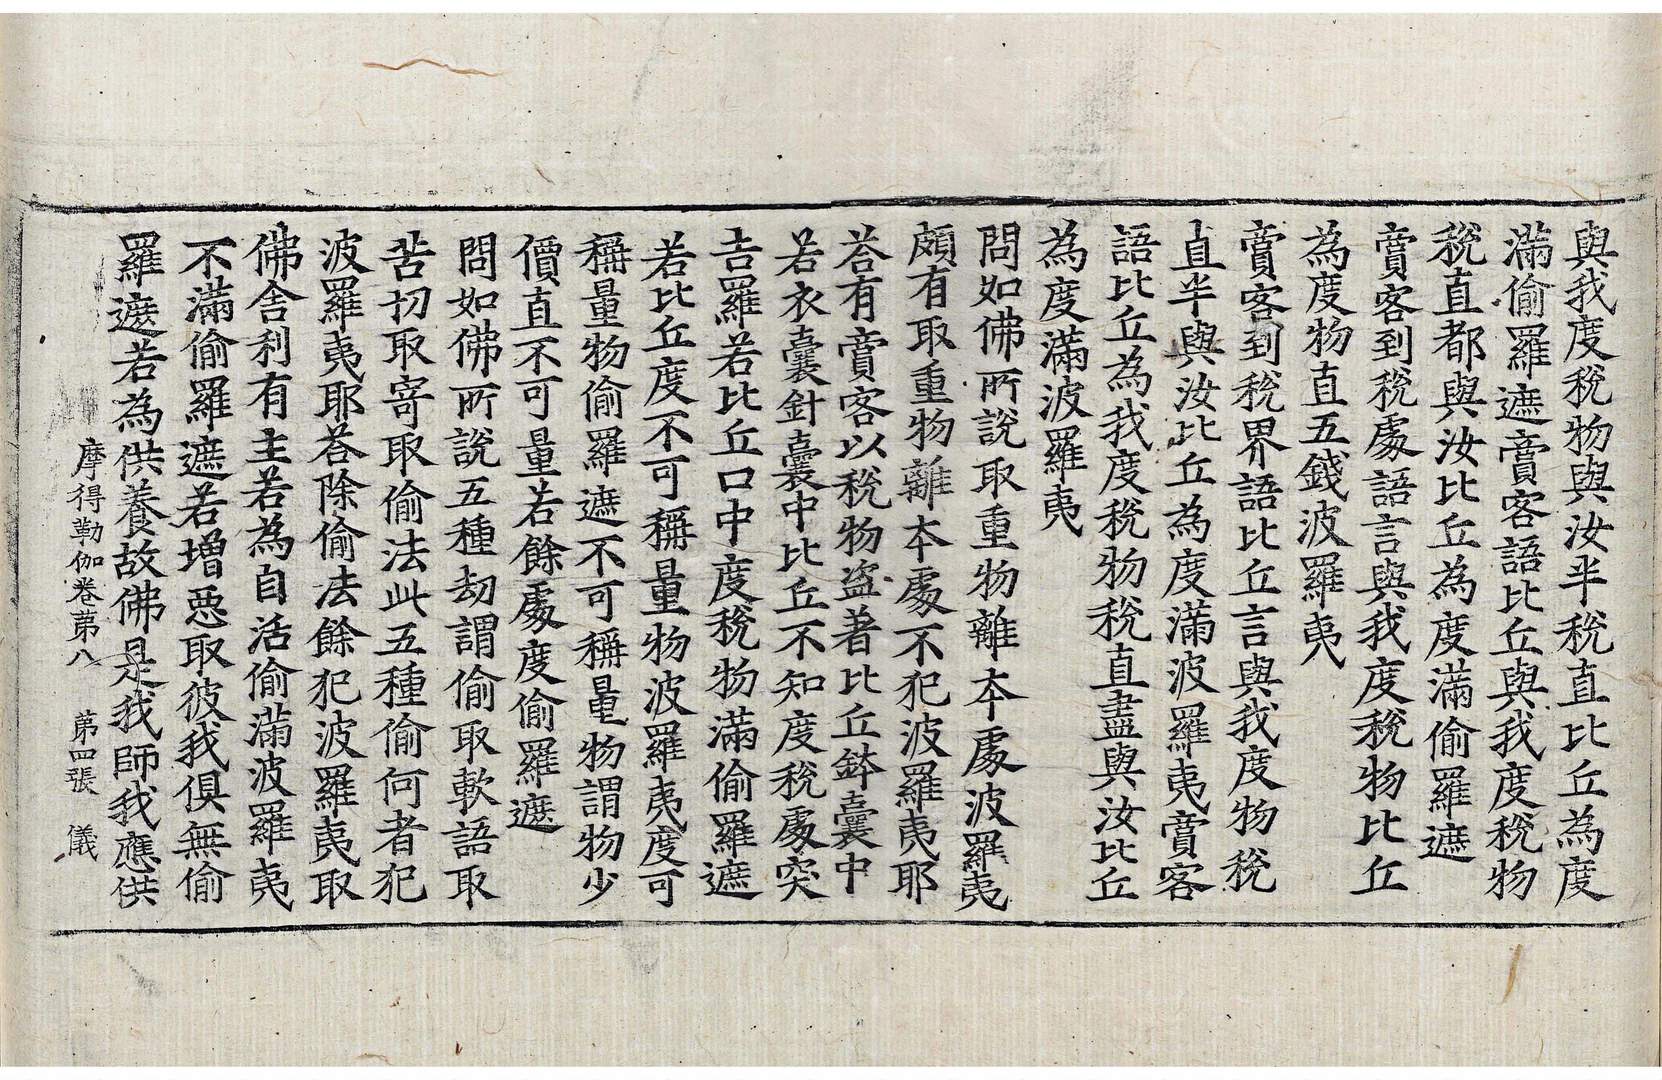 與我度稅物與汝半稅直比丘為度
滿偷羅遮賣客語比丘與我度稅物
稅直都與汝比丘為度滿偷羅遮
賣客到稅處語言與我度稅物比丘
為度物直五錢波羅夷
賣客到稅界語比丘言與我度物稅
直半與汝比丘為度滿波羅夷賣客
語比丘為我度稅物稅直盡與汝比丘
為度滿波羅夷
問如佛所說取重物離本處波羅夷
頗有取重物離本處不犯波羅夷耶
荅有賣客以稅物盜著比丘鉢囊中
若衣囊針囊中比丘不知度稅處突
吉羅若比丘口中度稅物滿偷羅遮
若比丘度不可稱量物波羅夷度可
稱量物偷羅遮不可稱量物謂物少
價直不可量若餘處度偷羅遮
問如佛所說五種劫謂偷取軟語取
苦切取寄取偷法此五種偷何者犯
波羅夷耶荅除偷法餘犯波羅夷取
佛舍利有主若為自活偷滿波羅夷
不滿偷羅遮若增惡取彼我俱無偷
羅遮若為供養故佛是我師我應供
摩得勒伽卷苐八 苐四張 儀